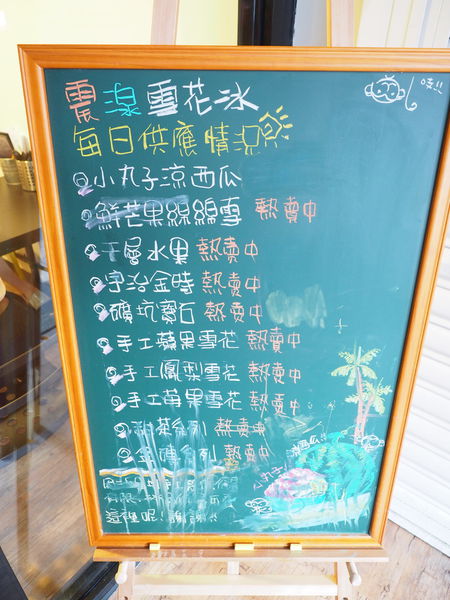 震湶雪花冰
每日供應情況
小丸子涼西瓜
鮮芒果綿綿雪 熱賣中
千層水果 熱賣中
宇治金時 熱賣中
礦坑寶石 熱賣中
手工蘋果雪花 熱賣中
手工鳳梨雪花 熱賣中
手工百果雪花 熱賣中
甜菜系列 熱賣中
系列 熱賣中
小丸子
涼西瓜
這裡呢!謝謝!!